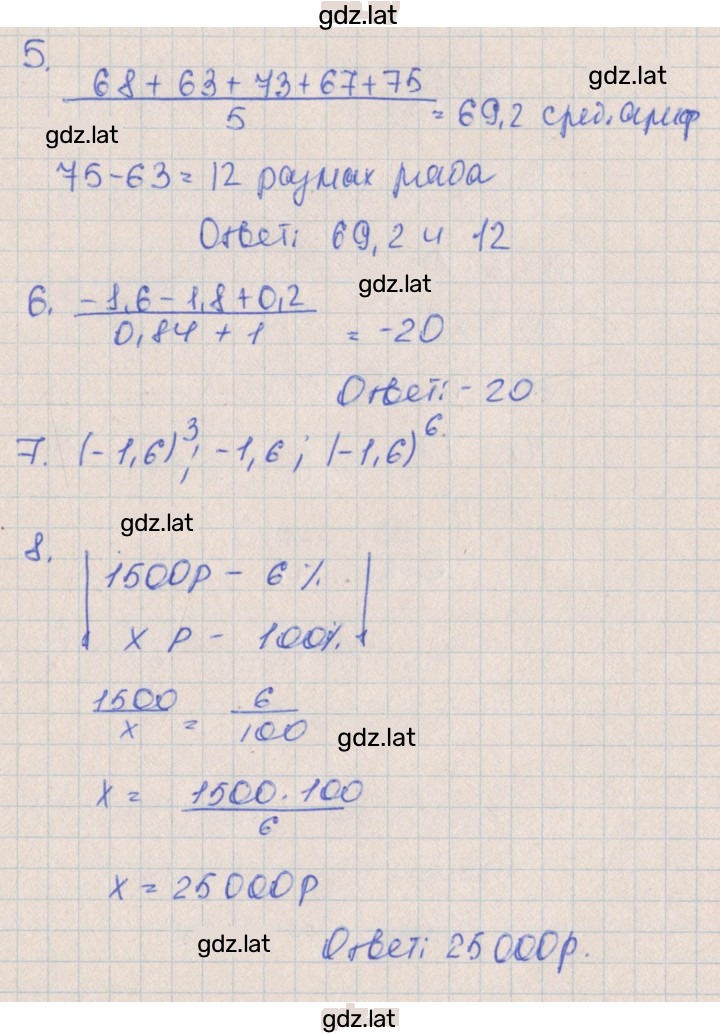 gdz.lat
5.
68 + 63 + 73 + 67 + 75
gdz.lat
5
= 69,2 сред. ариф
gdz.lat
75 - 63 = 12 размах ряда
Ответ: 69,2 и 12
gdz.lat
6. -1,6 - 1,8 + 0,2
0,84 + 1
= -20
Ответ: - 20
7. (-1,6)³; -1,6; (-1,6)⁶.
gdz.lat
8.
1500р - 6%
x р - 100%
1500/x = 6/100
gdz.lat
x = 1500 · 100
6
x = 25 000р
gdz.lat
Ответ: 25 000р.
gdz.lat